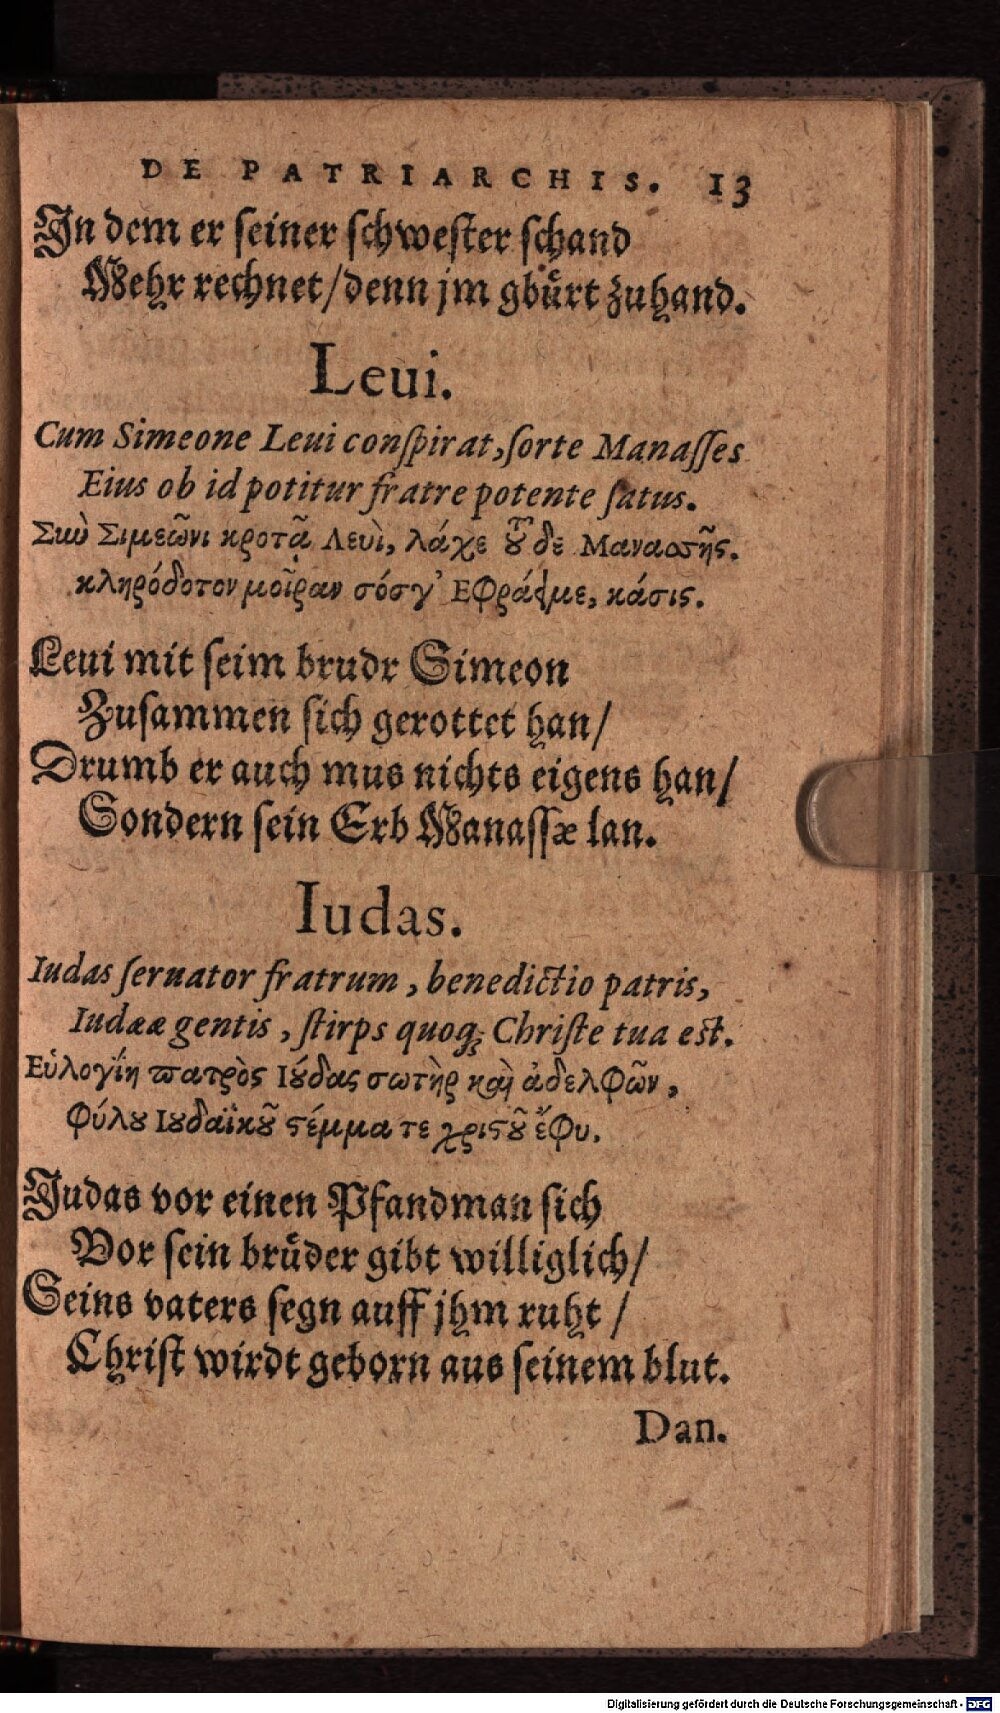 DE PATRIARCHIS. 13
In dem er seiner schwester schand
Mehr rechnet/denn jm gbuͤrt zuhand.
Leui.
Cum Simeone Leui conſpirat, ſorte Manaſſes
Eius ob id potitur fratre potente ſatus.
Σὺν Σιμεῶνι κροτᾷ Λευὶ, λάχε τοῦ δε Μανασσῆς.
κληρόδοτον μοῖραν σόσγ' Εφράϊμε, κάσις.
Leui mit ſeim brudr Simeon
Zuſammen ſich gerottet han/
Drumb er auch mus nichts eigens han/
Sondern ſein Erb Manaſſæ lan.
Iudas.
Iudas ſeruator fratrum, benedictio patris,
Iudææ gentis, ſtirps quoq; Chriſte tua eſt.
Εὐλογίη πατρὸς Ιούδας σωτὴρ καὶ ἀδελφῶν,
Φύλου Ιουδαϊκοῦ στέμμα τε χριστοῦ ἔφυ.
Judas vor einen Pfandman ſich
Vor ſein bruͤder gibt williglich/
Seins vaters ſegn auff jhm ruht/
Chriſt wirdt geborn aus ſeinem blut.
Dan.
Digitalisierung gefördert durch die Deutsche Forschungsgemeinschaft - DFG